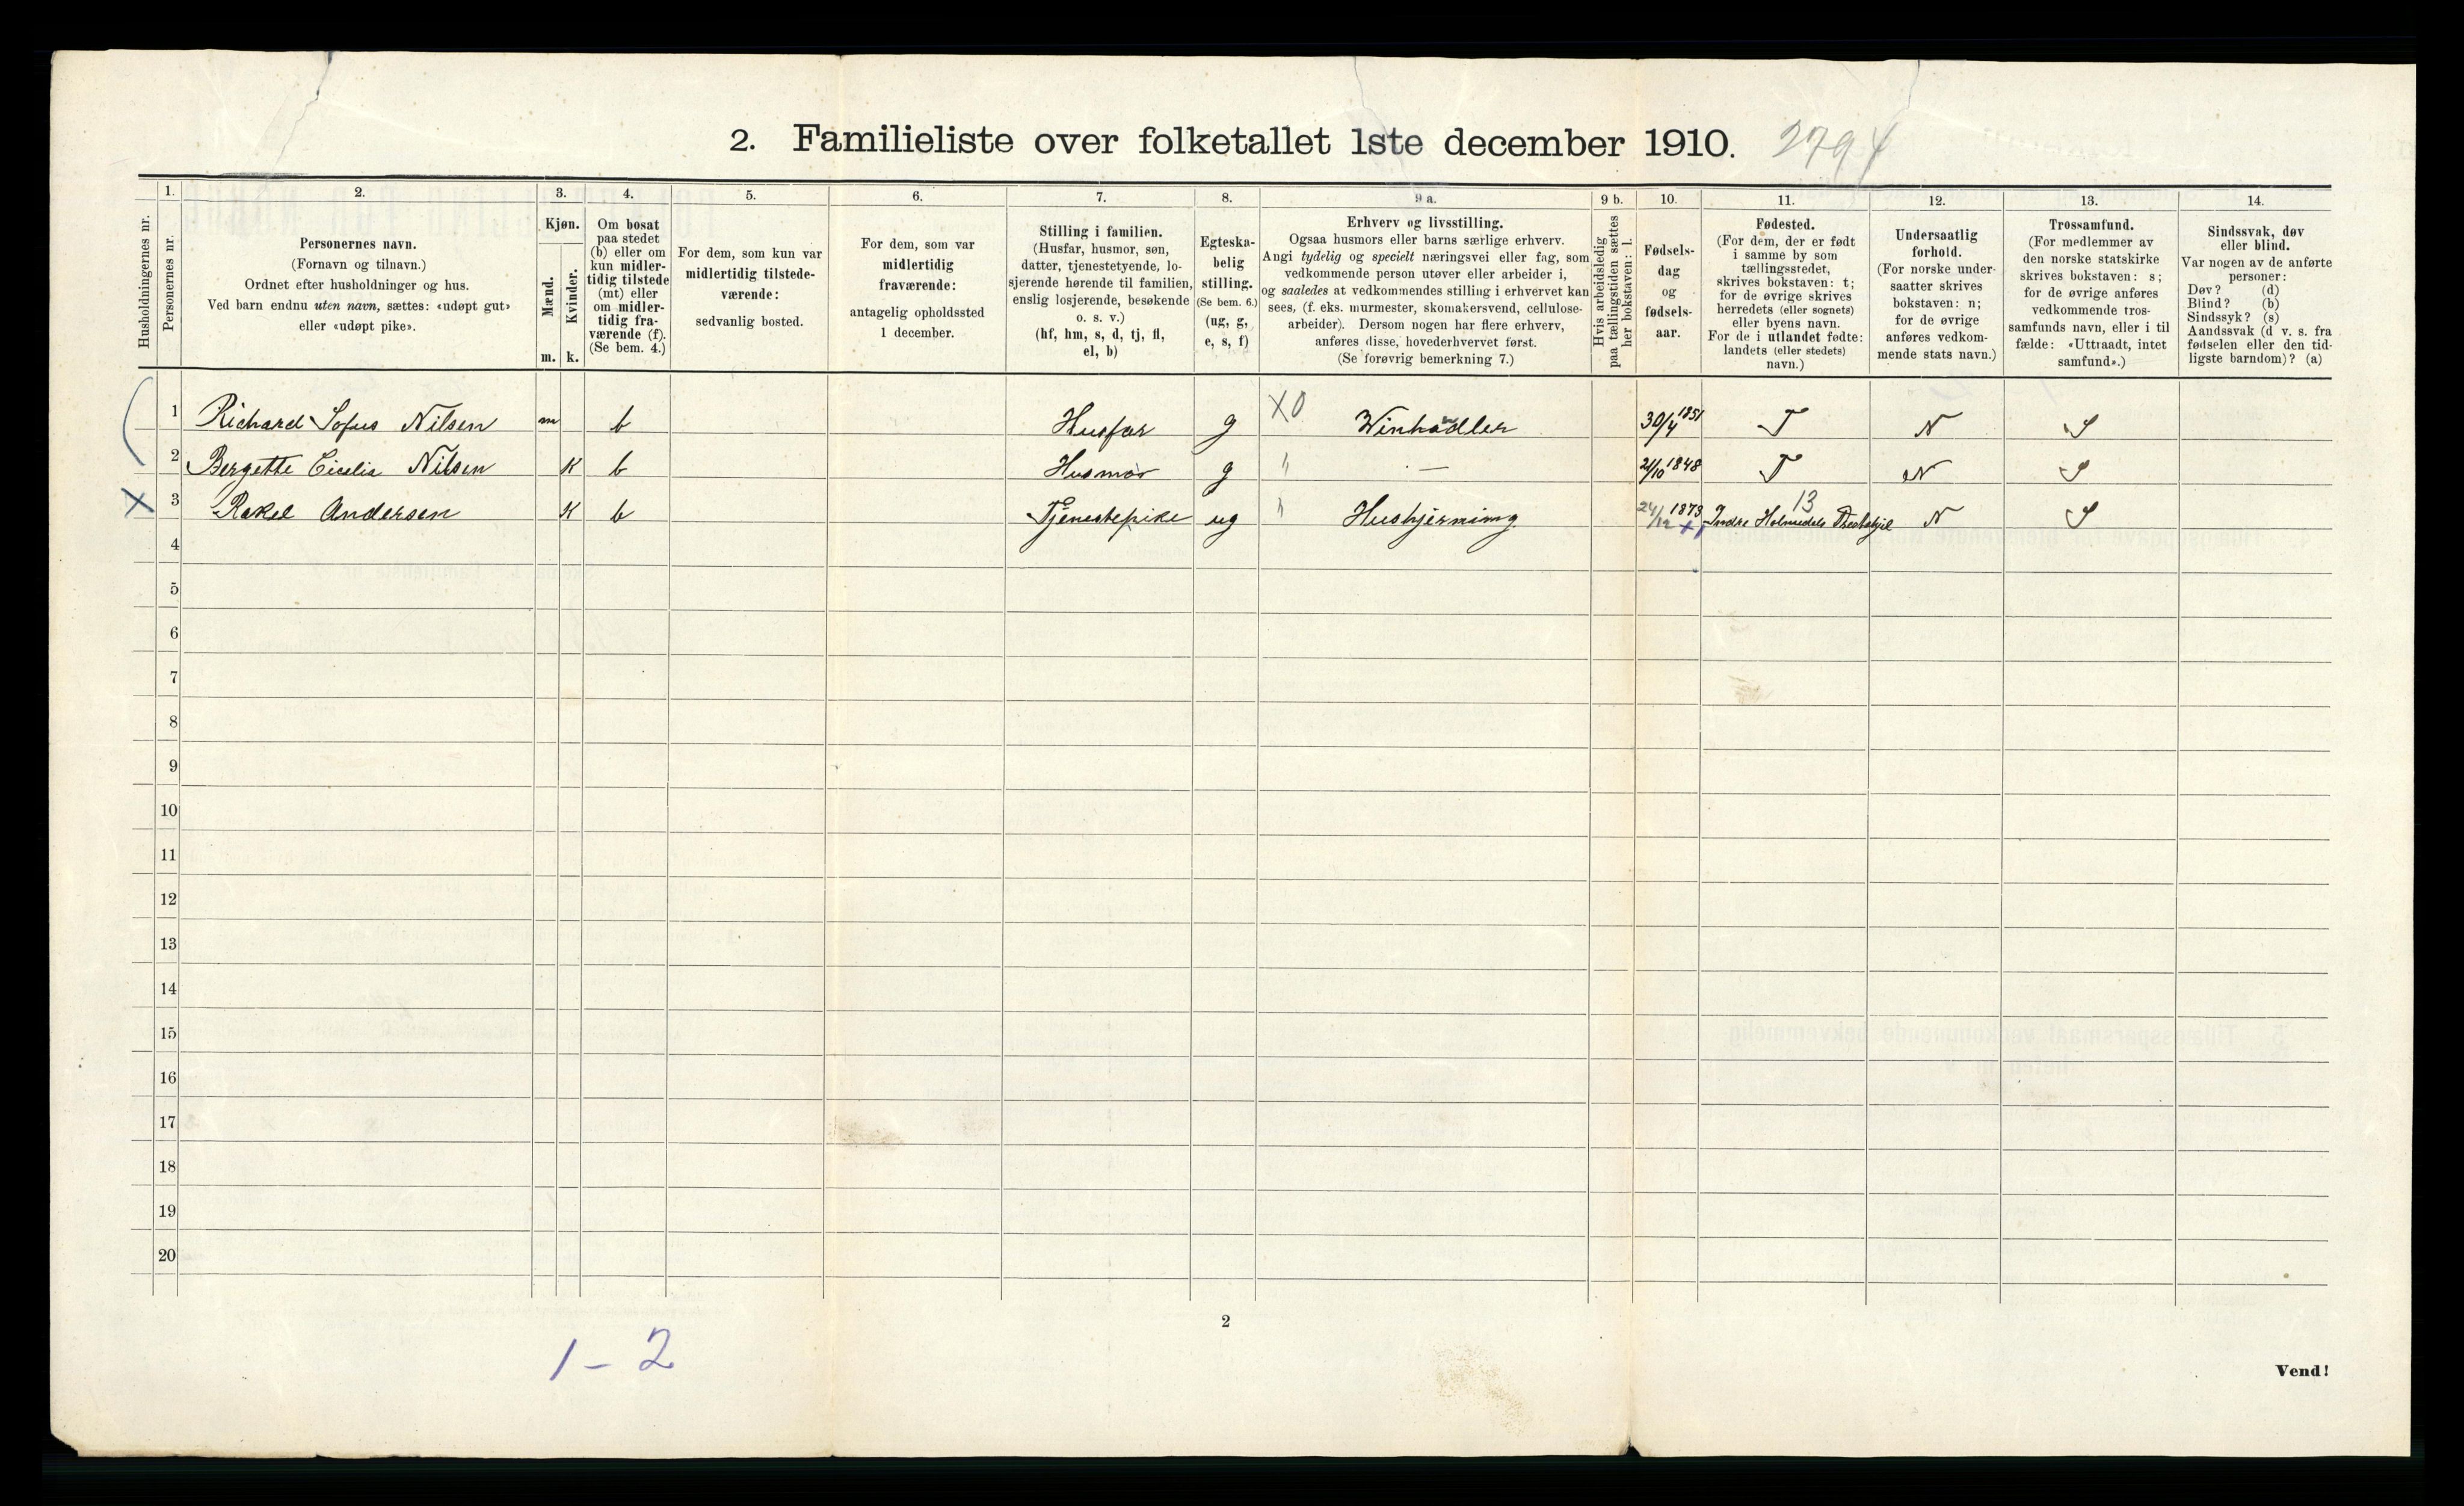 2. Familieliste over folketallet 1ste december 1910. 2794
Husholdningernes nr.
1.
Personernes nr.
2.
Personernes navn.
(Fornavn og tilnavn.)
Ordnet efter husholdninger og hus.
Ved barn endnu uten navn, sættes: «udøpt gut»
eller «udøpt pike».
3.
Kjøn.
Mænd.
Kvinder.
m. k.
4.
Om bosat
paa stedet
(b) eller om
kun midler-
tidig tilstede
(mt) eller
om midler-
tidig fra-
værende (f).
(Se bem. 4.)
5.
For dem, som kun var
midlertidig tilstede-
værende:
sedvanlig bosted.
6.
For dem, som var
midlertidig
fraværende:
antagelig opholdssted
1 december.
7.
Stilling i familien.
(Husfar, husmor, søn,
datter, tjenestetyende, lo-
sjerende hørende til familien,
enslig losjerende, besøkende
o. s. v.)
(hf, hm, s, d, tj, fl,
el, b)
8.
Egteska-
belig
stilling.
(Se bem. 6.)
(ug, g,
e, s, f)
9 a.
Erhverv og livsstilling.
Ogsaa husmors eller barns særlige erhverv.
Angi tydelig og specielt næringsvei eller fag, som
vedkommende person utøver eller arbeider i,
og saaledes at vedkommendes stilling i erhvervet kan
sees, (f. eks. murmester, skomakersvend, cellulose-
arbeider). Dersom nogen har flere erhverv,
anføres disse, hovederhvervet først.
(Se forøvrig bemerkning 7.)
9 b.
Hvis arbeidsledig
paa tællingstiden sættes
her bokstaven: l.
10.
Fødsels-
dag
og
fødsels-
aar.
11.
Fødested.
(For dem, der er født
i samme by som
tællingsstedet,
skrives bokstaven: t;
for de øvrige skrives
herredets (eller sognets)
eller byens navn.
For de i utlandet fødte:
landets (eller stedets)
navn.)
12.
Undersaatlig
forhold.
(For norske under-
saatter skrives
bokstaven: n;
for de øvrige
anføres vedkom-
mende stats navn.)
13.
Trossamfund.
(For medlemmer av
den norske statskirke
skrives bokstaven: s;
for de øvrige anføres
vedkommende tros-
samfunds navn, eller i til
fælde: «Uttraadt, intet
samfund».)
14.
Sindssvak, døv
eller blind.
Var nogen av de anførte
personer:
Døv? (d)
Blind? (b)
Sindssyk? (s)
Aandssvak (d v. s. fra
fødselen eller den tid-
ligste barndom)? (a)
1 Richard Sofus Nilsen m b Husfar g X0 Winhandler 30/4 1851 T N S
2 Bergette Cicelia Nilsen K b Husmor g " — 21/10 1848 T N S
X 3 Rakel Andersen K b Tjenestepike ug " Hushjerning 24/12 1873 +1 13 Indre Holmedals Prestegjel N S
4
5
6
7
8
9
10
11
12
13
14
15
16
17
18
19
20
2
1 - 2
Vend!